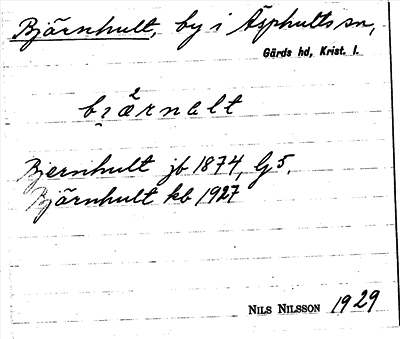 Björnhult, by i Äsphults sn,
Gärds hd, Krist. l.
Bjernhult jb 1874, Lj 5.
Björnhult kb 1927
NILS NILSSON 1929